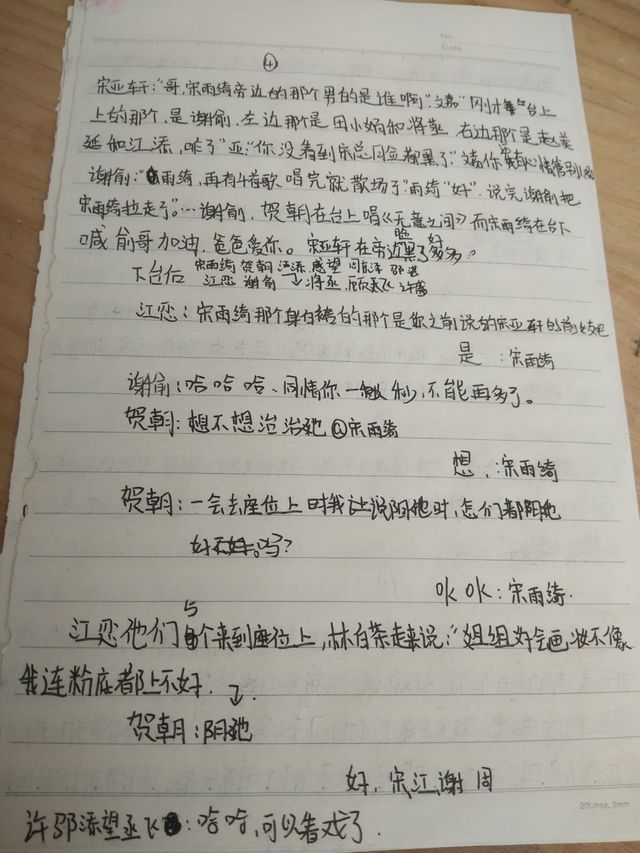 No
Date
④
宋亚轩:"哥,宋雨绮旁边的那个男的是谁啊""文嘉"刚才台上
上的那个,是谢俞.左边那个是田小娟和将丞,右边那个是赵美
延和江添,咋了"亚:"你没看到宋总回金都黑了"
谢俞:"雨绮,再有4首歌唱完就散场了"雨绮"好".说完谢俞把
宋雨绮拉走了"…谢俞,贺朝在台上唱《天意之间》而宋雨绮在台下
喊俞哥加油,爸爸爱你。宋亚轩在旁边脸黑了好多。
下台后 宋雨绮 贺朝 江添 盛望
江恋 谢俞 将丞 顾飞 许
江恋:宋雨绮那个身白裙白的那个是你之前说的宋亚轩的前女友吧
是:宋雨绮
谢俞:哈哈哈、同情你一秒,不能再多了。
贺朝:想不想治治她@宋雨绮
想,:宋雨绮
贺朝:一会去座位上时我让说阴她时,怎们都阴她
好吗?
OK OK:宋雨绮.
江恋他们5个来到座位上,林白茶走来说:"姐组好会画妆不像
我连粉底都上不好.
贺朝:阴她
好,宋江谢周
许邬添望丞飞:哈哈,可以看戏了.
20Lines, 9mm